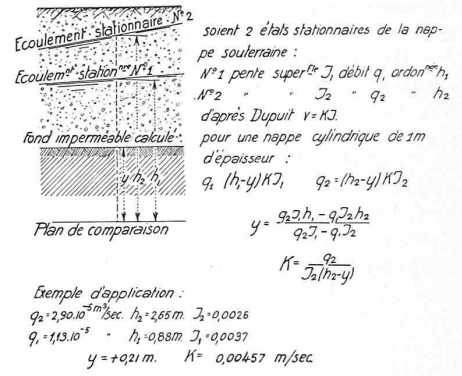 Ecoulement stationnaire N°2
Ecoulemnt stationnre N°1
Fond imperméable calculé
y h2 h1
Plan de comparaison
soient 2 états stationnaires de la nap-
pe souterraine :
N°1 pente superelle J1 débit q1 ordonnée h1
N°2 " " J2 " q2 " h2
d'après Dupuit v=KJ.
pour une nappe cylindrique de 1m
d'épaisseur :
q1 (h1-y)KJ1 q2=(h2-y)KJ2
y = (q2J1h1 - q1J2h2) / (q2J1 - q1J2)
K = q2 / (J2(h2-y))
Exemple d'application :
q2=2,90.10^-5 m³/sec. h2=2,65m. J2=0,0026
q1=1,13.10^-5 " h1=0,88m. J1=0,0037
y=+0,21m. K= 0,00457 m/sec.